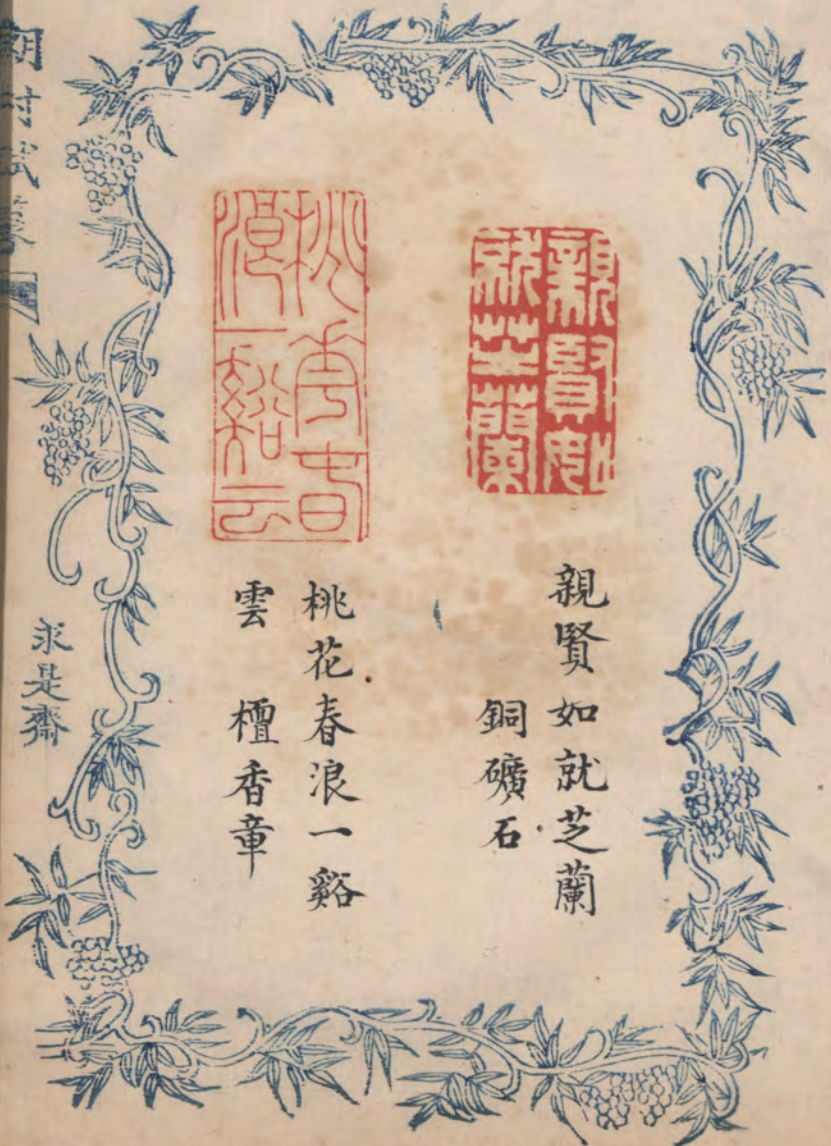 親賢如
就芝蘭
親賢如就芝蘭
銅礦石
桃花春
浪一谿云
桃花春浪一谿
雲　檀香章
求是齋